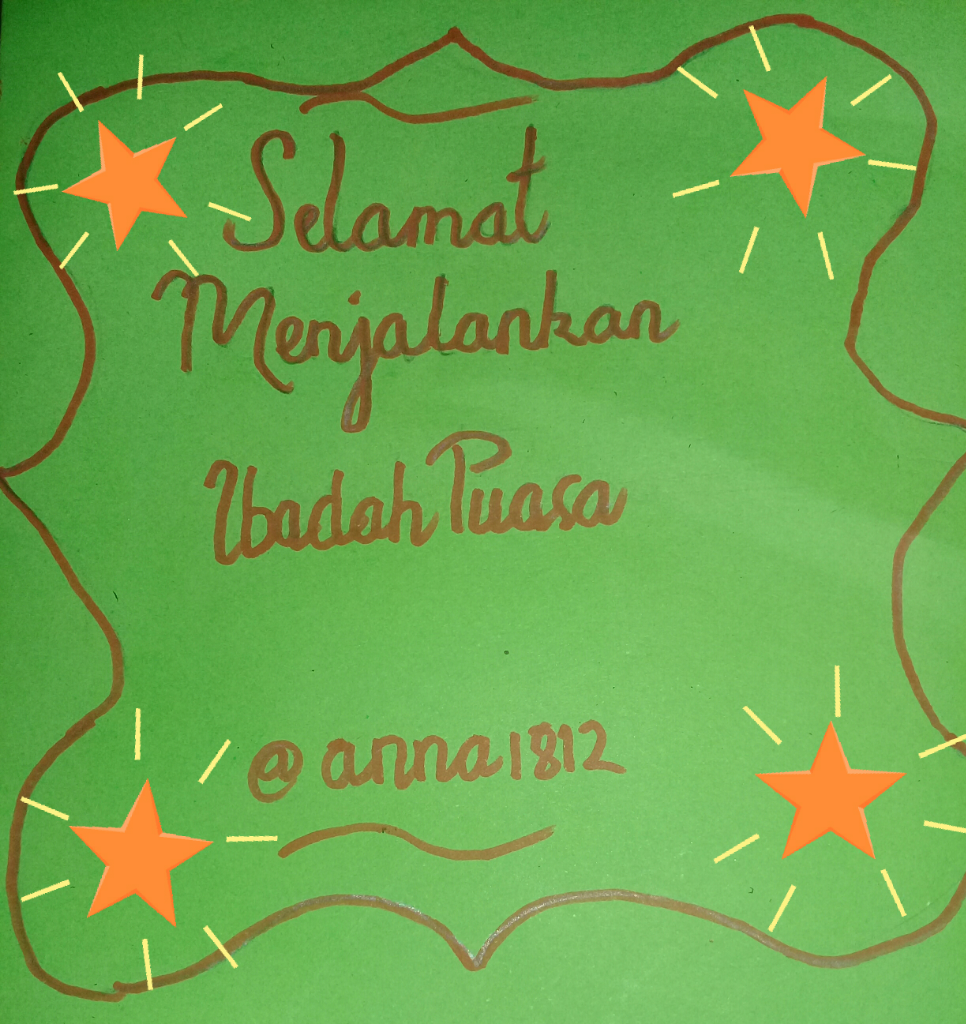 Selamat
Menjalankan
Ibadah Puasa
@anna1812